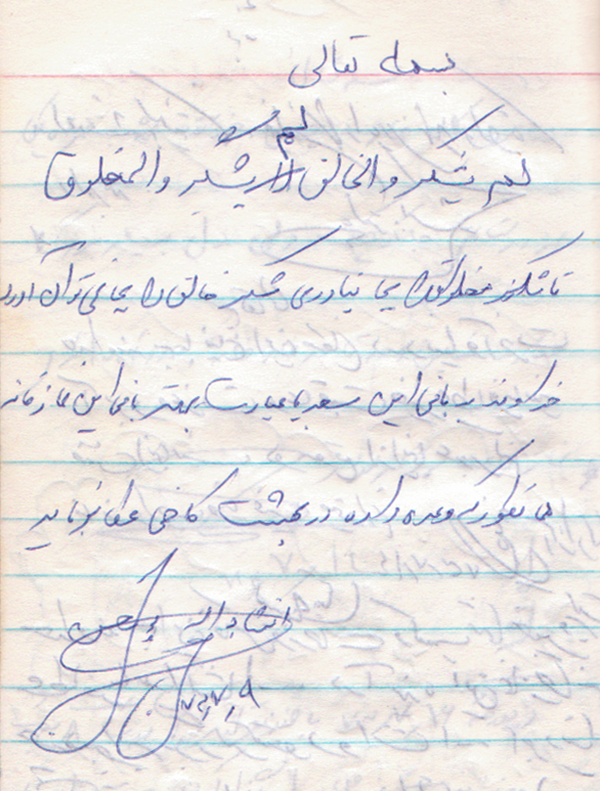 بسمه تعالی
لم یشکر و الخالق لم یشکر والمخلوق
تا شکر مخلوق را بجا نیاوری شکر خالق را بجا نمی توان اورد
خداوند به بانی این مسجد یا عبارت بهتر بانی این نمازخانه
همانطور که وعده داده در بهشت کاخی عطا بفرماید
انشاء الله
۷۳٫۷٫۹